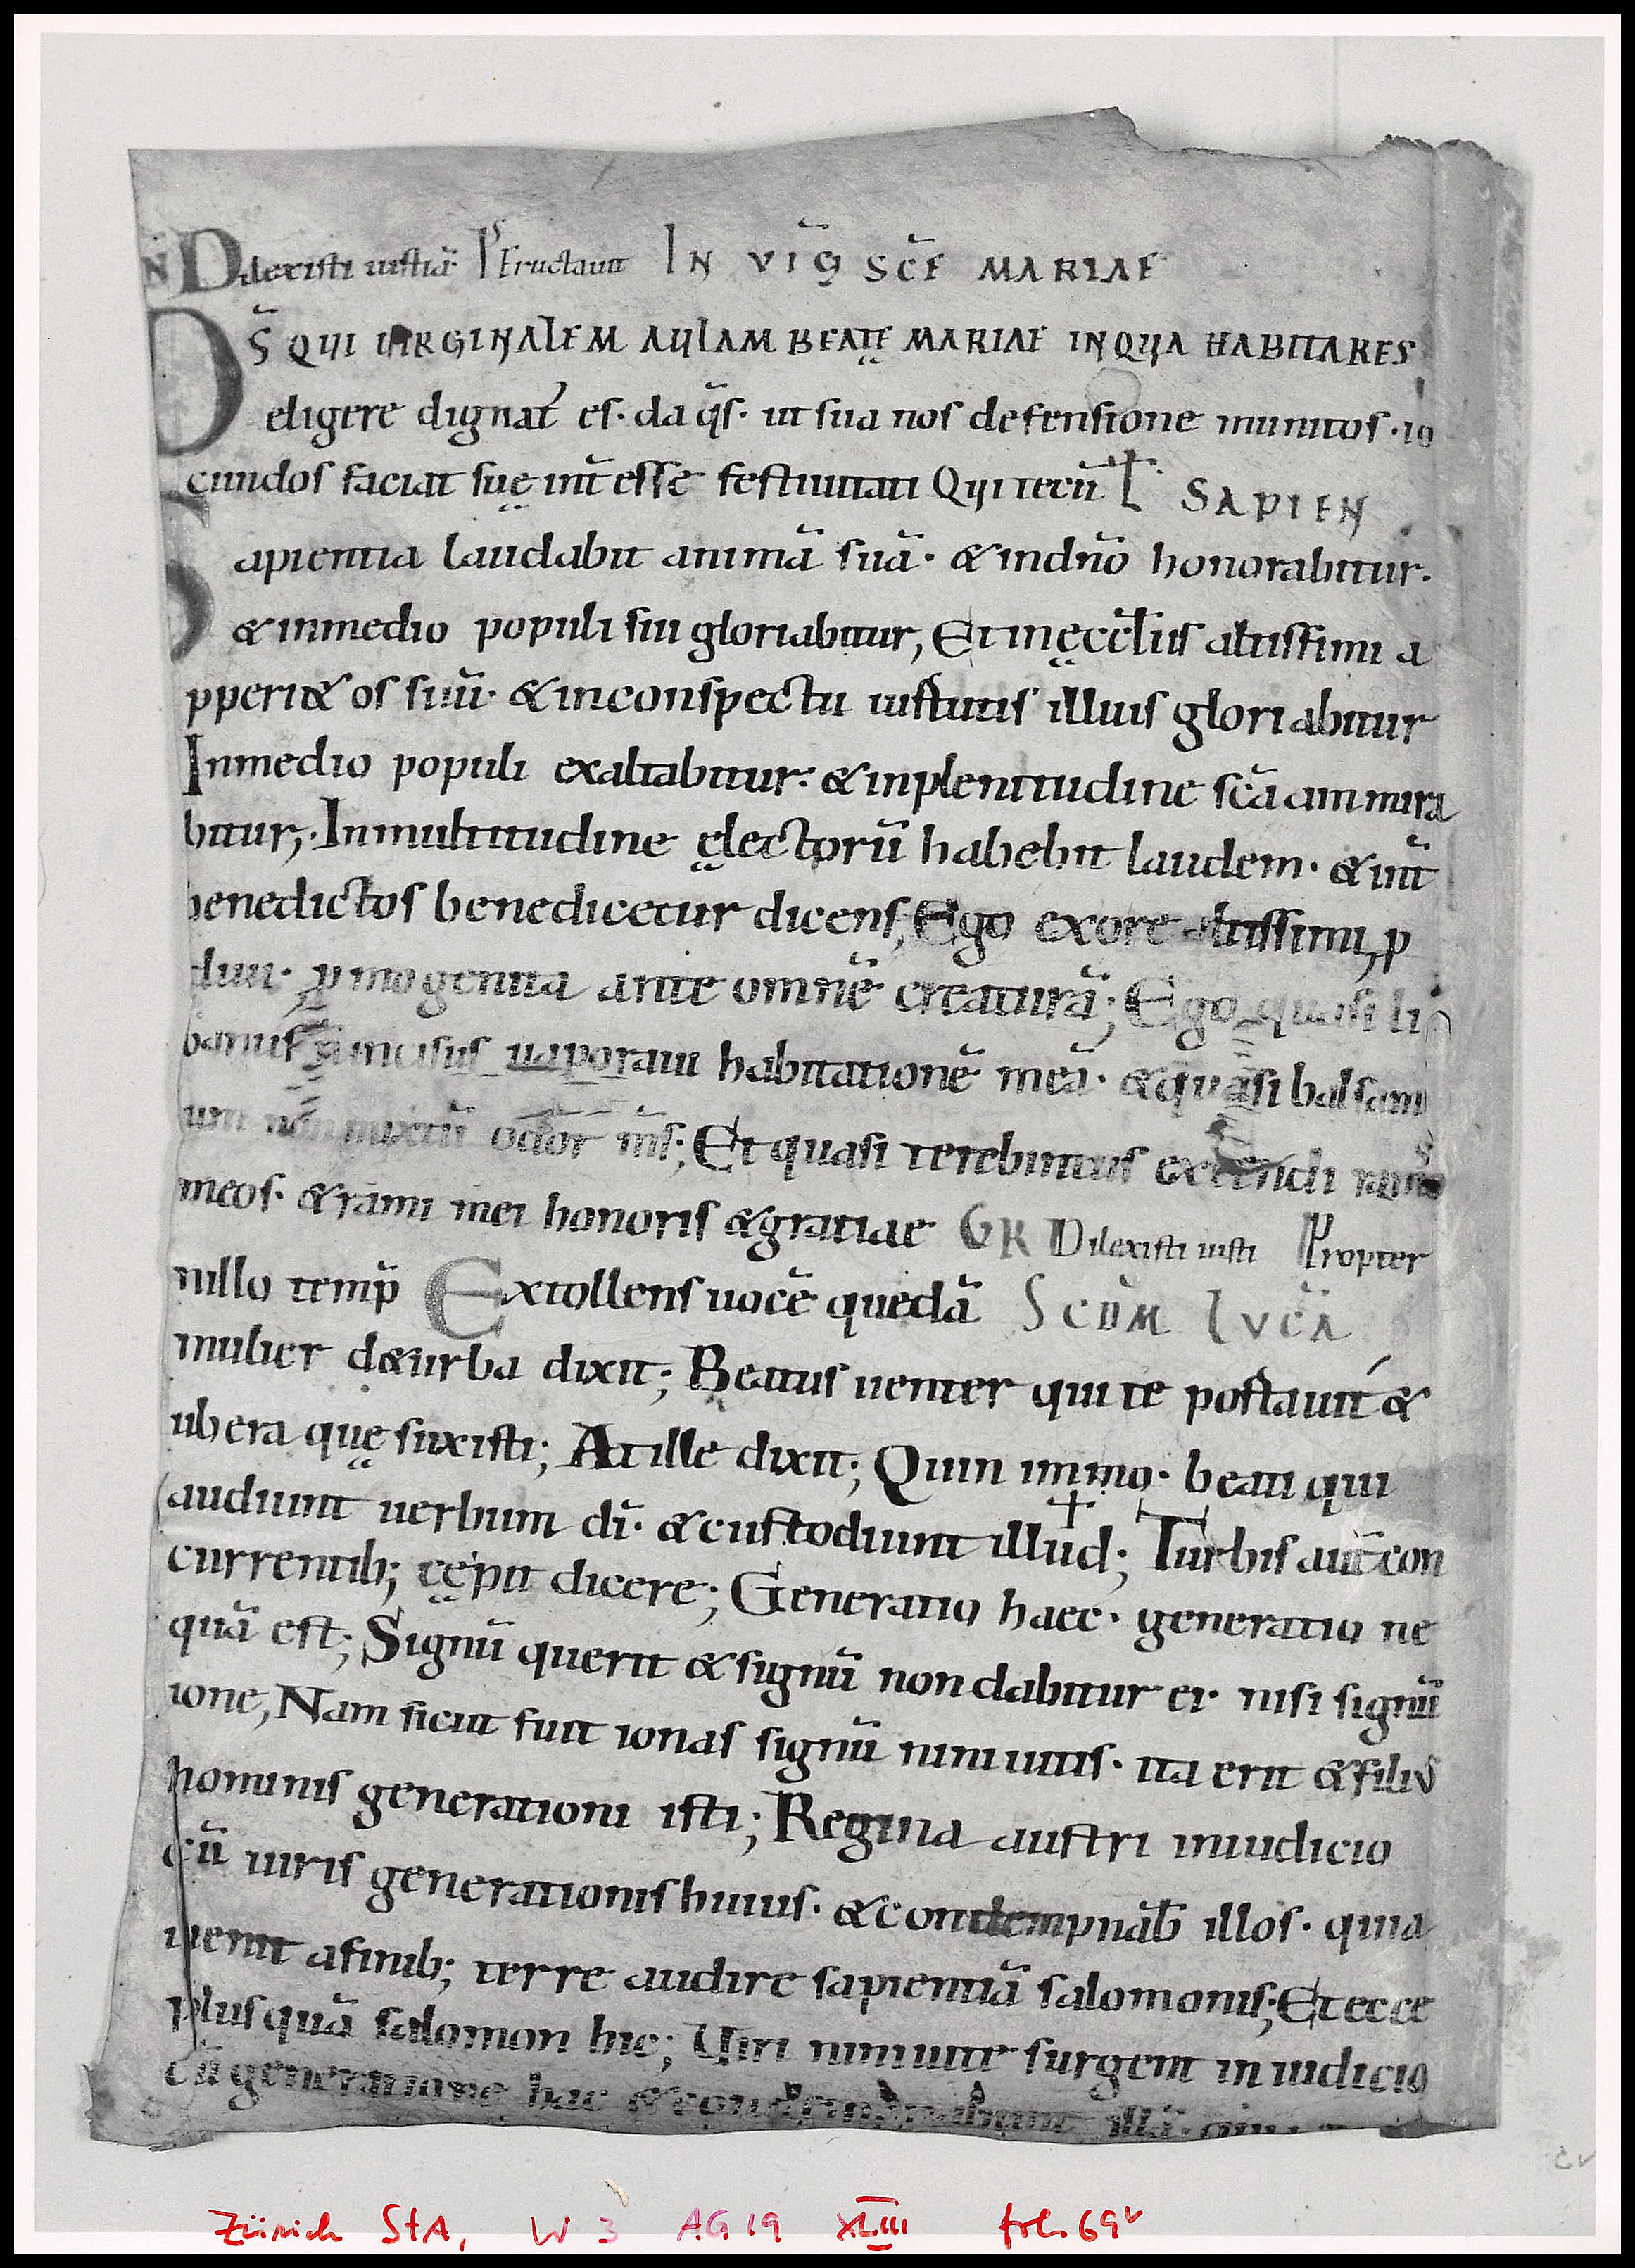 Dilexisti iustiā· Ps Eructauit IN VIG̅ SCE̅ MARIAE
DS̅ QUI VIRGINALEM AULAM BEATĘ MARIAE IN QUA HABITARES
eligere dignat᷒ es· da q̄s· ut sua nos defensione munitos· io
cundos faciat suę int̄ esse festiuitati Qui tecū L SAPIEN
Sapientia laudabit animā suā· & indn̄o honorabitur·
& inmedio populi sui gloriabitur, Et inęcclīis altissimi a
pperi& os suū· & inconspectu uirtutis illius gloriabitur
Inmedio populi exaltabitur· & inplenitudine scā ammira
bitur; Inmultitudine ęlectorū habebit laudem· & int̄
benedictos benedicetur dicens; Ego exore altissimi, p
diui· pmogenita ante omnē creaturā; Ego quasi li
banus n̄ incisus uaporaui habitationē meā· & quasi balsam
um nōn mixtū odor m̄s; Et quasi terebintus extendi ramos
meos· & rami mei honoris & gratiae GR Dilexisti iusti Propter
nillo temp̄ Extollens uocē quedā SCDM LVCA̅
mulier d& urba dixit; Beatus uenter qui te portauit & 
ubera quę suxisti; At ille dixit; Quin immo· beati qui
audiunt uerbum dī· & custodiunt illud; Turbis aut̄ con
currentib; cępit dicere; Generatio haec· generatio ne
quā est; Signū querit & signū non dabitur ei· nisi signū
ione, Nam sicut fuit ionas signū niniuitis· ita erit & filius
hominis generationi isti; Regina austri iniudicio
cū uiris generationis huius· & condempnab̄ illos· quia
uenit afinib; terre audire sapientiā salomonis; Et ecce
plus quā salomon hic; Uiri niniuite surgent in iudicio
cū generatione hac & condempnabunt illā· qui
Zürich StA, W 3 AG 19 XLIII fol. 69v